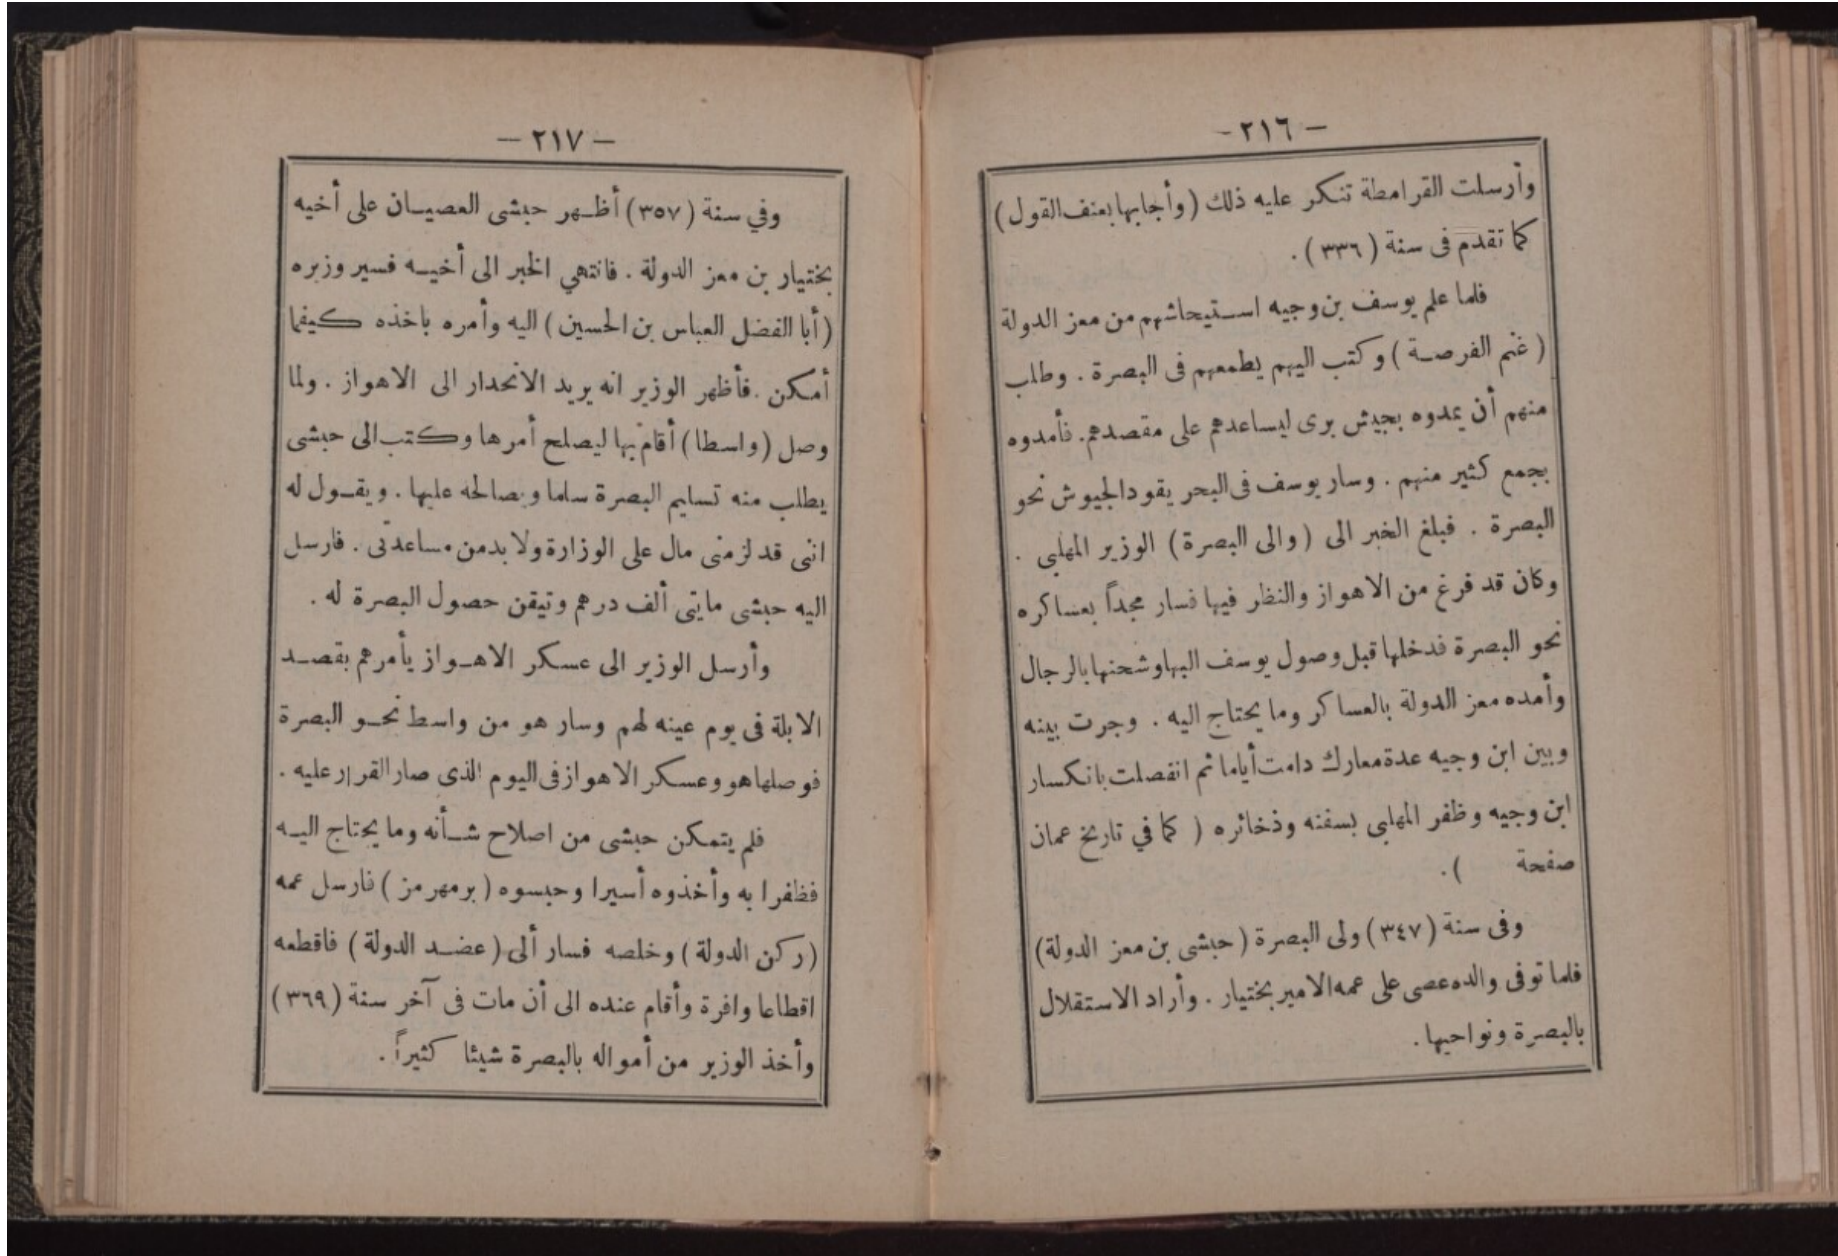 - ٢١٦ -
وأرسلت القرامطة تنكر عليه ذلك ( وأجابها بعنف القول )
كما تقدم فى سنة ( ٣٣٦ ) .
فلما علم يوسف بن وجيه استيحاشهم من معز الدولة
( غنم الفرصة ) وكتب اليهم يطمعهم فى البصرة . وطلب
منهم أن يمدوه بجيش برى ليساعدهم على مقصدهم. فأمدوه
بجمع كثير منهم . وسار يوسف فى البحر يقود الجيوش نحو
البصرة . فبلغ الخبر الى ( والى البصرة ) الوزير المهلبي .
وكان قد فرغ من الاهواز والنظر فيها فسار مجداً بعساكره
نحو البصرة فدخلها قبل وصول يوسف اليها وشحنها بالرجال
وأمده معز الدولة بالعساكر وما يحتاج اليه . وجرت بينه
وبين ابن وجيه عدة معارك دامت أياما ثم انفصلت بانكسار
ابن وجيه وظفر المهلبي بسفنه وذخائره ( كما في تاريخ عمان
صفحة ) .
وفى سنة ( ٣٤٧ ) ولى البصرة ( حبشى بن معز الدولة )
فلما توفى والده عصى على عمه الامير بختيار . وأراد الاستقلال
بالبصرة ونواحيها .
- ٢١٧ -
وفي سنة ( ٣٥٧ ) أظهر حبشى العصيان على أخيه
بختيار بن معز الدولة . فانتهي الخبر الى أخيه فسير وزبره
( أبا الفضل العباس بن الحسين ) اليه وأمره باخذه كيفما
أمكن . فأظهر الوزير انه يريد الانحدار الى الاهواز . ولما
وصل ( واسطا ) أقام بها ليصلح أمرها وكتب الى حبشى
يطلب منه تسايم البصرة ساما ويصالحه عليها . ويقول له
اننى قد لزمنى مال على الوزارة ولا بد من مساعدتى . فارسل
اليه حبشى مايتى ألف درهم وتيقن حصول البصرة له .
وأرسل الوزير الى عسكر الاهواز يأمرهم بقصد
الابلة فى يوم عينه لهم وسار هو من واسط نحو البصرة
فوصلها هو وعسكر الاهواز فى اليوم الذى صار القرار عليه .
فلم يتمكن حبشى من اصلاح شأنه وما يحتاج اليه
فظفرا به وأخذوه أسيرا وحبسوه ( برمهرمز ) فارسل عمه
( ركن الدولة ) وخلصه فسار ألى ( عضد الدولة ) فاقطعه
اقطاعا وافرة وأقام عنده الى أن مات فى آخر سنة ( ٣٦٩ )
وأخذ الوزير من أمواله بالبصرة شيئا كثيراً .